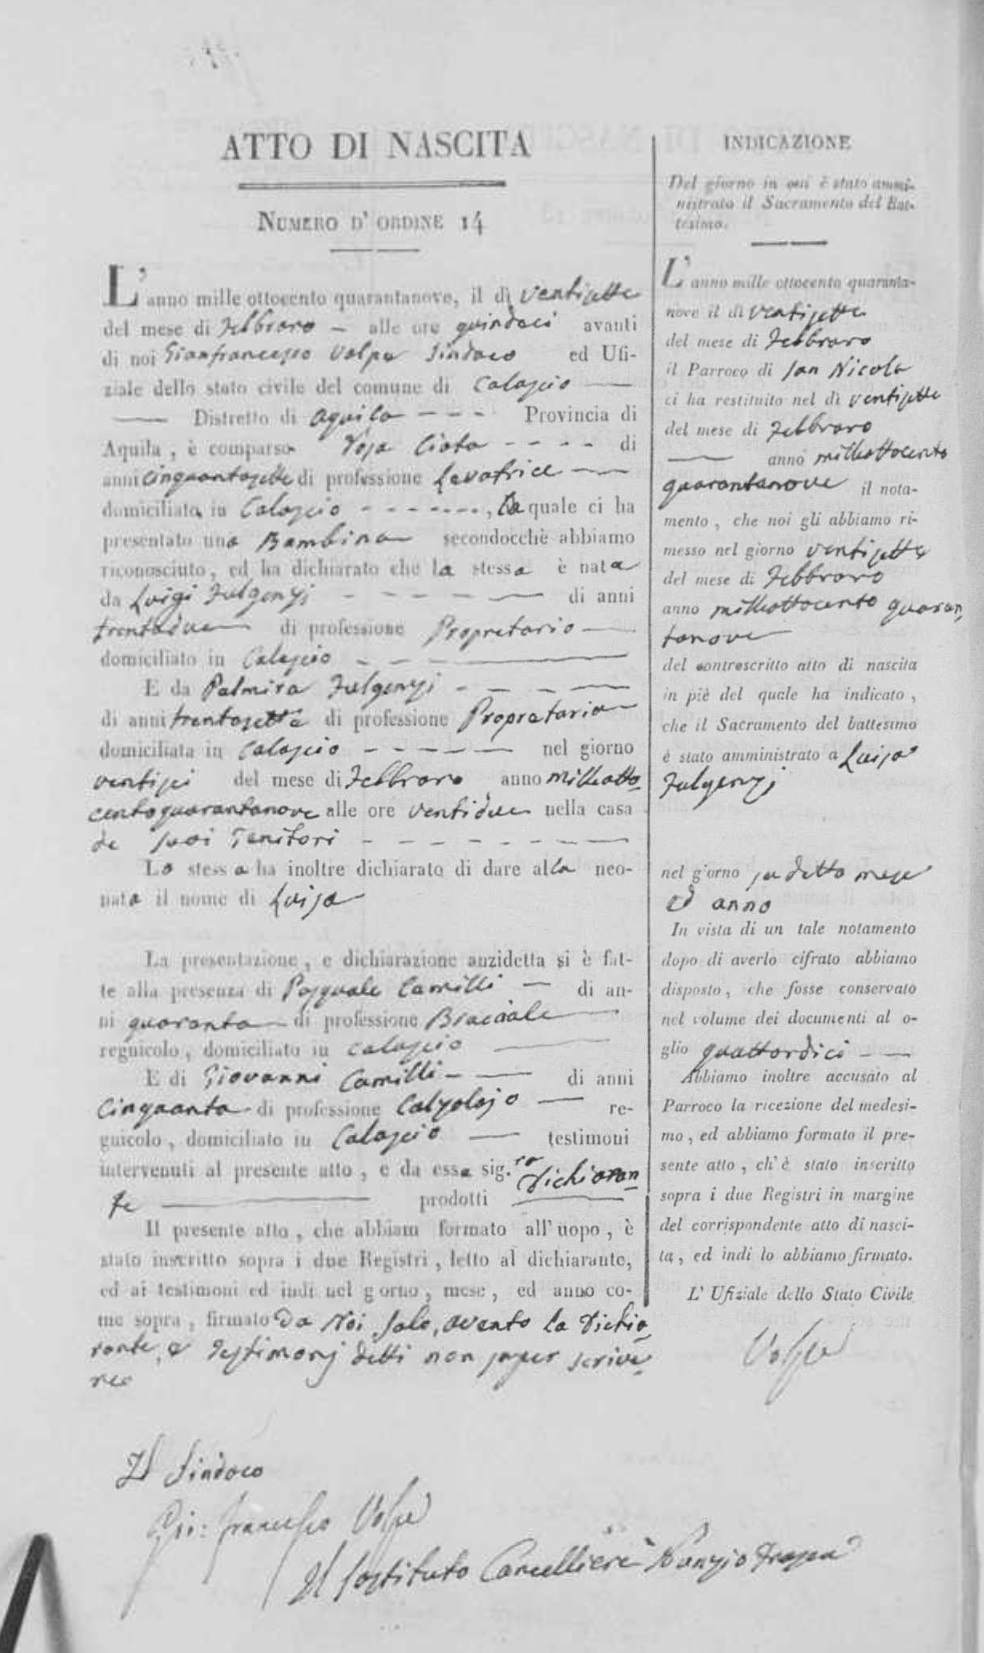 ATTO DI NASCITA
NUMERO D' ORDINE 14
L'anno mille ottocento quarantanove, il dì ventisette
del mese di Febbraro - alle ore quindeci avanti
di noi Gianfrancesco Volpe Sindaco ed Ufi-
ziale dello stato civile del comune di Calascio
Distretto di Aquila - - - Provincia di
Aquila, è comparsa Rosa Ciota - - - - di
anni cinquantasette di professione Levatrice
domiciliata in Calascio - - - - - - -, La quale ci ha
presentato una Bambina secondocchè abbiamo
riconosciuto, ed ha dichiarato che la stessa è nata
da Luigi Fulgenzj - - - - - di anni
trentadue di professione Propretario
domiciliato in Calascio - -
E da Palmira Fulgenzj - - - -
di anni trentasette di professione Propretaria
domiciliata in Calascio - - - - - - nel giorno
ventisei del mese di Febbraro anno milleotto
centoquarantanove alle ore ventidue nella casa
de suoi Genitori - - - - - - - -
La stessa ha inoltre dichiarato di dare alla neo-
nata il nome di Luisa
La presentazione, e dichiarazione anzidetta si è fat-
te alla presenza di Pasquale Camilli - di an-
ni quaranta di professione Bracciale
regnicolo, domiciliato in Calascio
E di Giovanni Camilli - di anni
Cinquanta di professione Calzolajo - re-
gnicolo, domiciliato in Calascio - testimoni
intervenuti al presente atto, e da essa sig.ra Dichiaran
te prodotti
Il presente atto, che abbiam formato all'uopo, è
stato inscritto sopra i due Registri, letto al dichiarante,
ed ai testimoni ed indi nel giorno, mese, ed anno co-
me sopra, firmato Da Noi solo, avento la Dichia
rante, e Testimonj detti non saper scrive
re
Il Sindaco
Gio: Francesco Volpe
Il Sostituto Cancelliere Nunzio
INDICAZIONE
Del giorno in cui è stato ammi-
nistrato il Sacramento del Bat-
tesimo.
L'anno mille ottocento quaranta-
nove il dì ventisette
del mese di Febbraro
il Parroco di San Nicola
ci ha restituito nel dì ventisette
del mese di Febbraro
anno milleottocento
quarantanove il nota-
mento, che noi gli abbiamo ri-
messo nel giorno ventisette
del mese di Febbraro
anno milleottocento quaran
tanove
del controscritto atto di nascita
in piè del quale ha indicato,
che il Sacramento del battesimo
è stato amministrato a Luisa
Fulgenzj
nel giorno su detto mese
ed anno
In vista di un tale notamento
dopo di averlo cifrato abbiamo
disposto, che fosse conservato
nel volume dei documenti al o-
glio quattordici - -
Abbiamo inoltre accusato al
Parroco la ricezione del medesi-
mo, ed abbiamo formato il pre-
sente atto, ch'è stato inscritto
sopra i due Registri in margine
del corrispondente atto di nasci-
ta, ed indi lo abbiamo firmato.
L'Ufiziale dello Stato Civile
Volpe